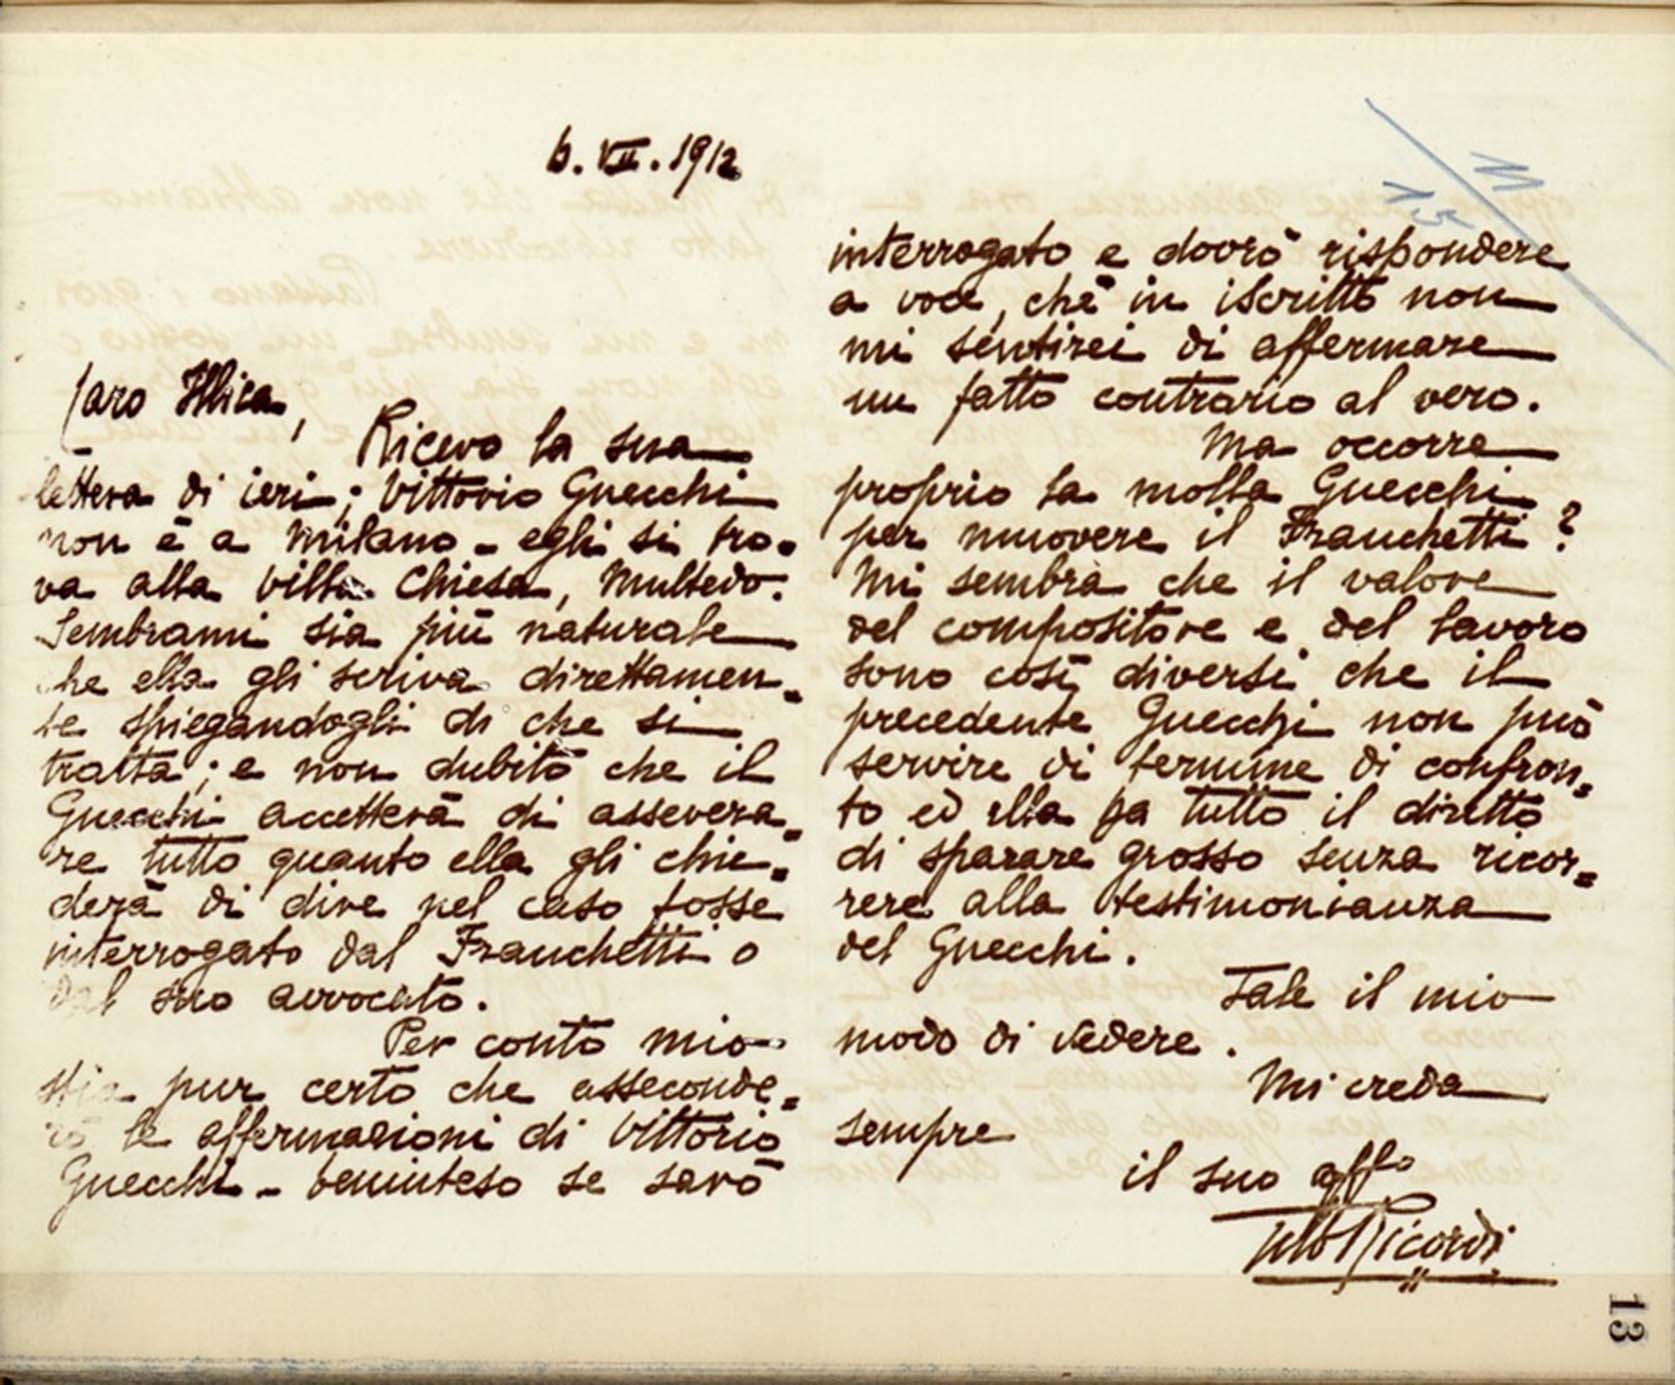 6.VII.1912
Caro Illica,
Ricevo la sua
lettera di ieri; Vittorio Gnecchi
non è a Milano - egli si tro=
va alla Villa Chiesa, Multedo.
Sembrami sia più naturale
che ella gli scriva direttamen=
te spiegandogli di che si
tratta; e non dubito che il
Gnecchi accetterà di assevera=
re tutto quanto ella gli chie=
derà di dire nel caso fosse
interrogato dal Franchetti o
dal suo avvocato.
Per conto mio
stia pur certo che asseconde=
rò le affermazioni di Vittorio
Gnecchi - beninteso se sarò
interrogato e dovrò rispondere
a voce, chè in iscritto non
mi sentirei di affermare
un fatto contrario al vero.
Ma occorre
proprio la molla Gnecchi
per muovere il Franchetti?
Mi sembra che il valore
del compositore e del lavoro
sono così diversi che il
precedente Gnecchi non può
servire di termine di confron=
to ed ella ha tutto il diritto
di sparare grosso senza ricor=
rere alla testimonianza
del Gnecchi.
Tale il mio
modo di vedere.
Mi creda
sempre
il suo affo
Tito Ricordi
13